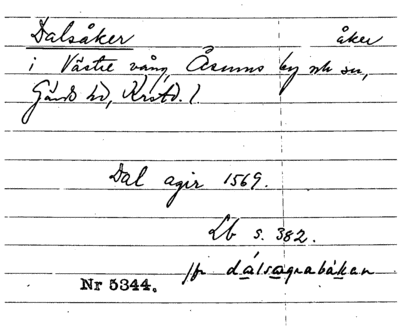 Dalsåker åker
i Västre vång, Åsums by och sn,
Gärds hd, Krstd. l.
Dal agir 1569.
Lb s. 382.
jfr dalsagrabakan
Nr 5344.